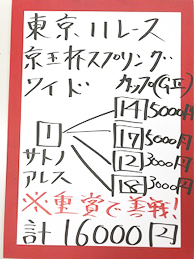 東京11レース
京王杯スプリング
ワイド カップ(GII)
14 5000円
1 17 5000円
サトノ 12 3000円
アレス 18 3000円
※重賞で善戦!
計16000円